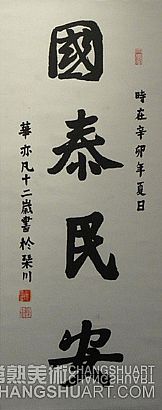 國泰民安
時在辛卯年夏日
華亦凡十二歲書於琴川
常熟美術 CHANGSHUART